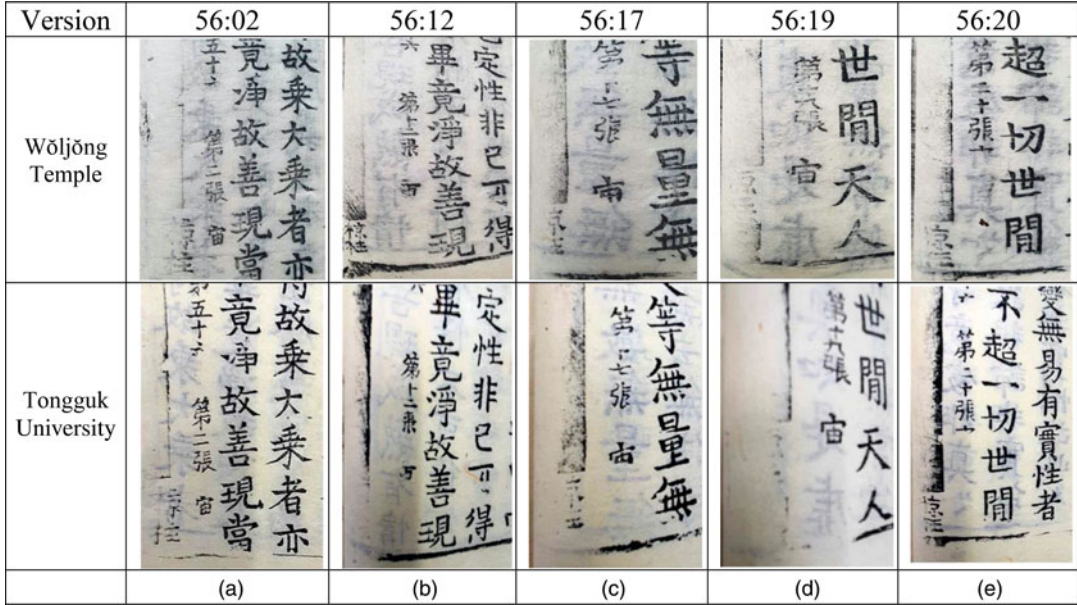 Version 56:02 56:12 56:17 56:19 56:20
Wŏljŏng
Temple
故乘大乘者亦
竟淨故善現當
五十六 第二張 宙
定性非已可得
畢竟淨故善現
第十二張
等無量無
第十七張 宙
世間天人
第十九張 宙
超一切世間
第二十張
Tongguk
University
故乘大乘者亦
竟淨故善現當
第五十六 第二張 宙
定性非已可得
畢竟淨故善現
第十二張
等無量無
第十七張 宙
世間天人
第十九張 宙
變無易有實性者
不超一切世間
第二十張
(a) (b) (c) (d) (e)